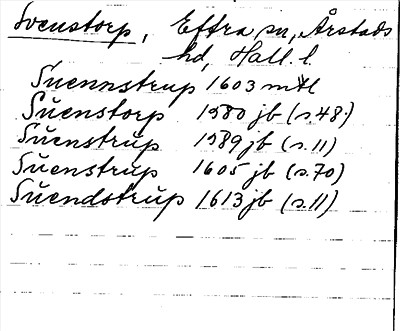 Svenstorp, Eftra sn, Årstads
hd, Hall. l.
Sŭennstrup 1603 mtl
Sŭenstorp 1580 jb (s.48.)
Sŭenstrŭp 1589 jb (s.11)
Sŭenstrŭp 1605 jb (s.70)
Sŭendstrŭp 1613 jb (s.11)